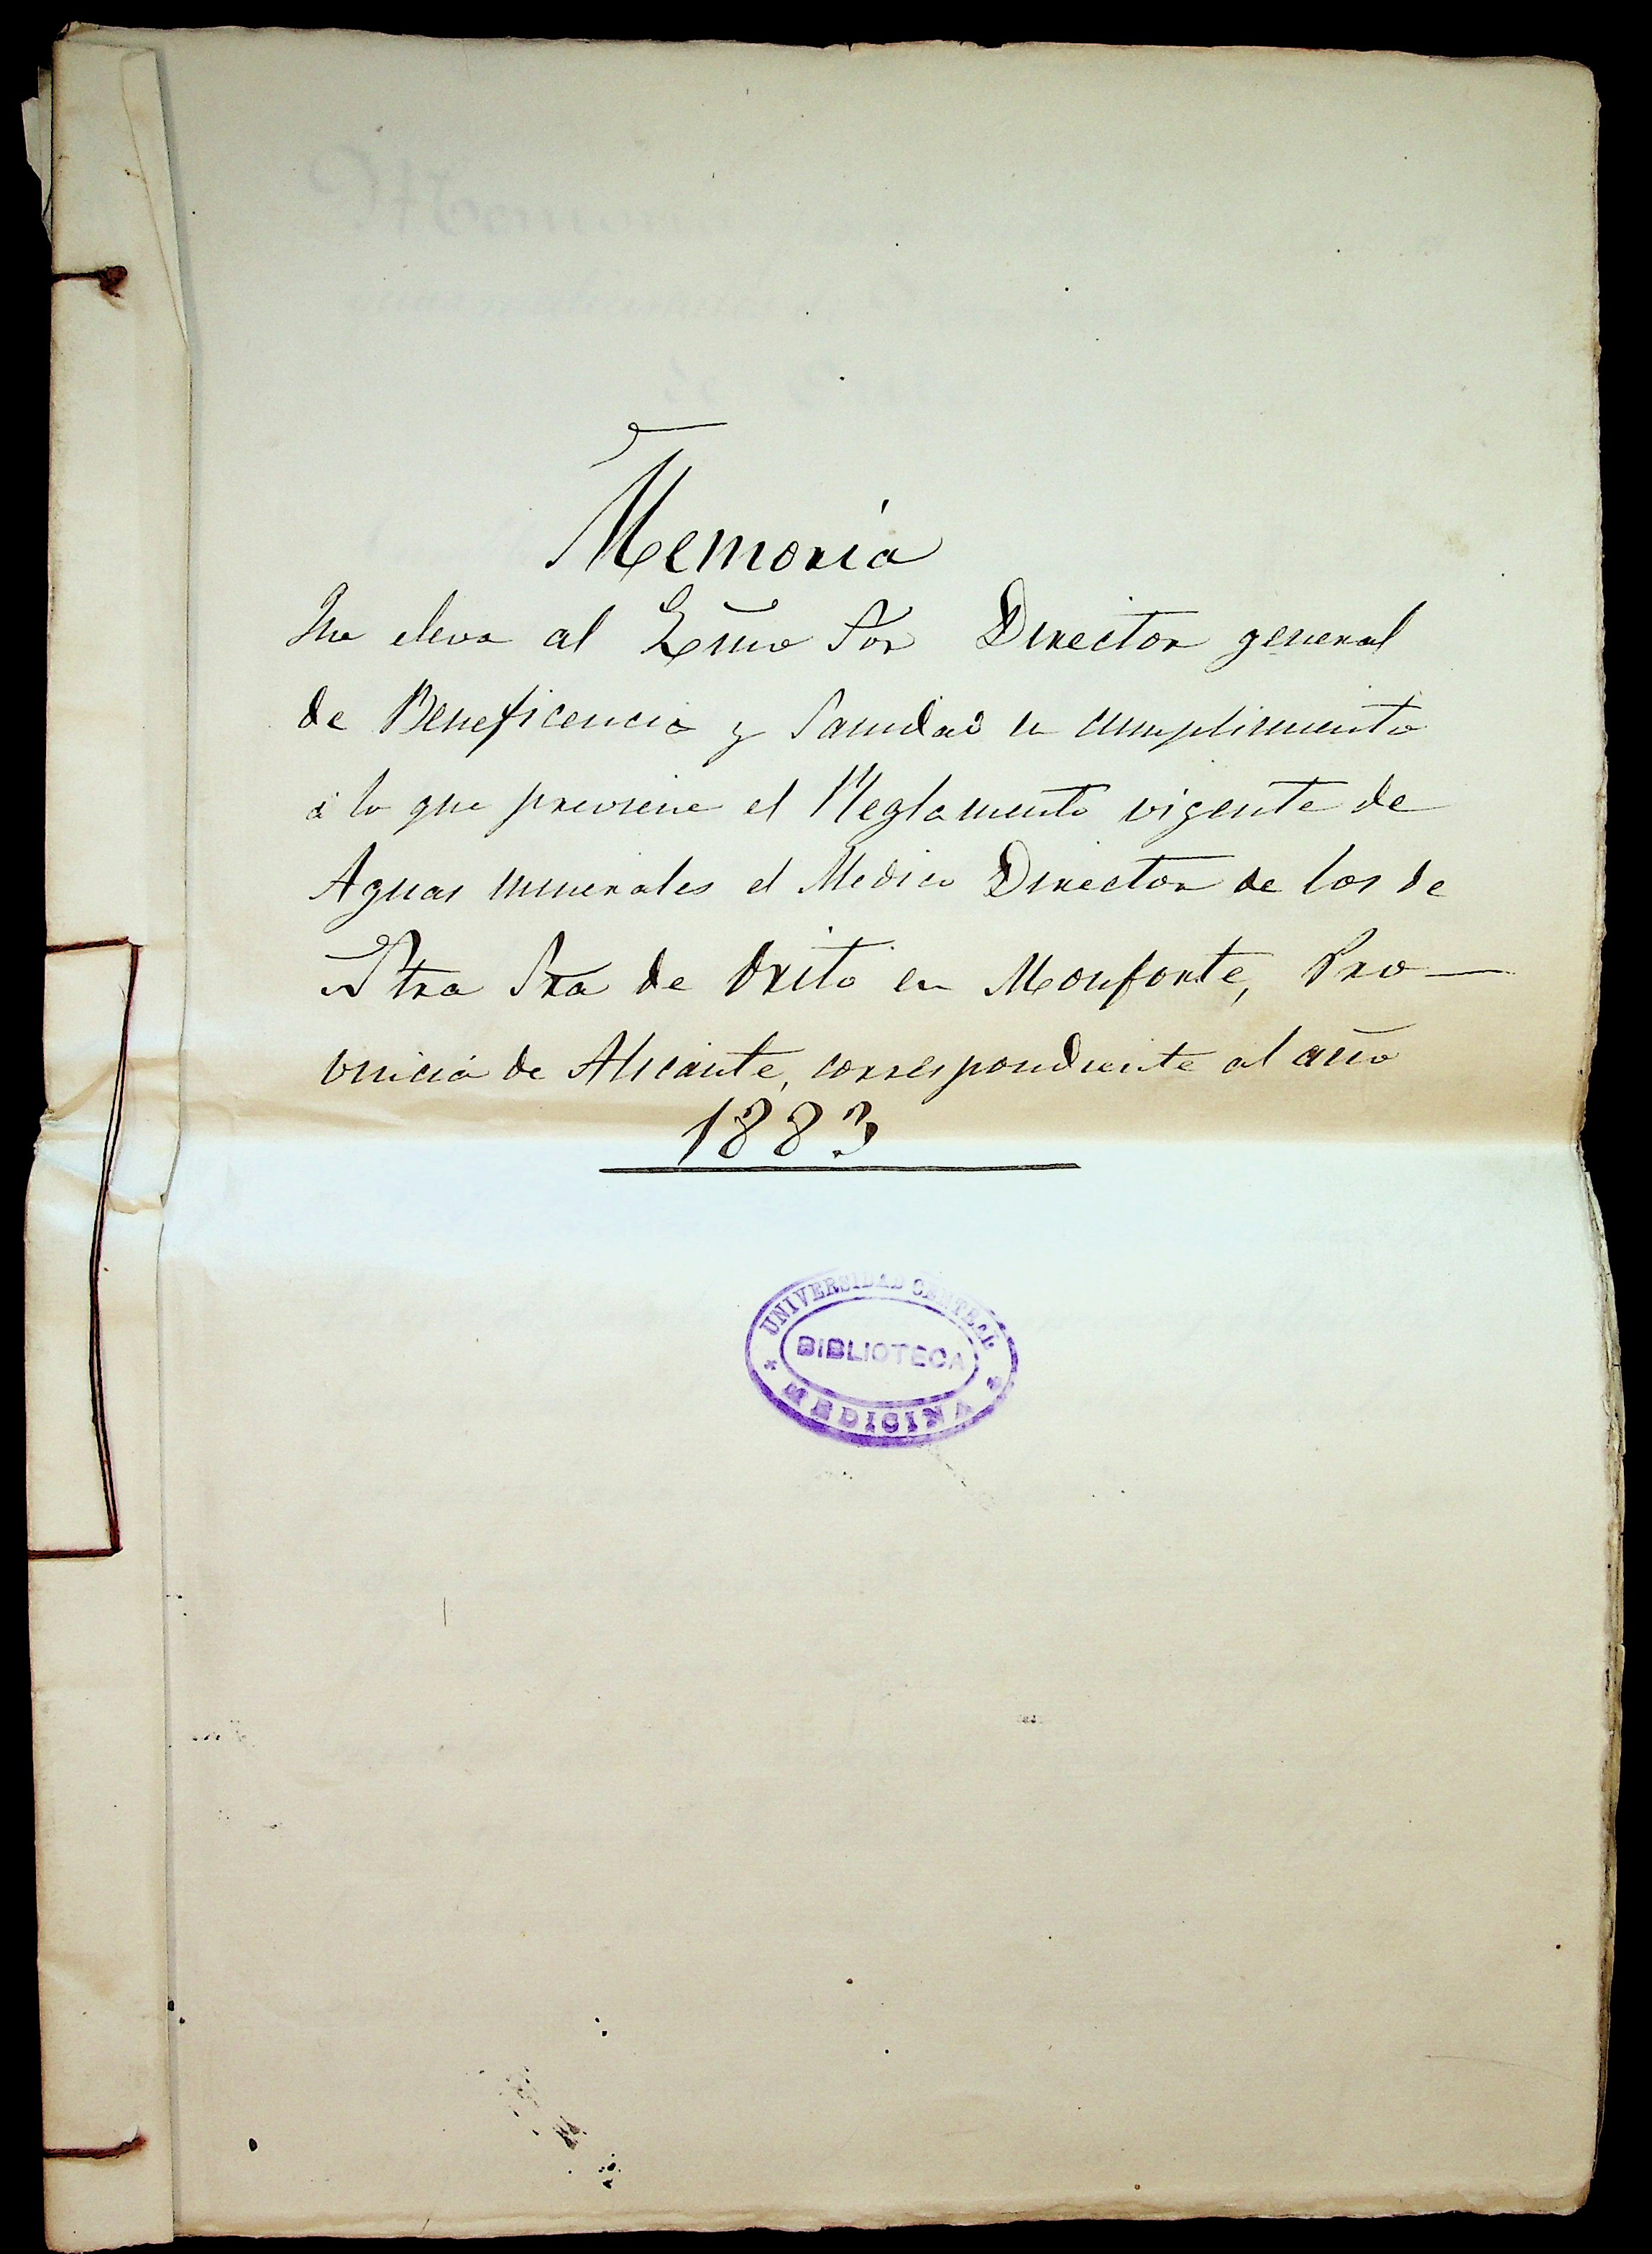 Memoria
Que eleva al Exmo Sor Director general
de Beneficencia y Sanidad en cumplimiento
á lo que previene el Reglamento vigente de
Aguas minerales el Medico Director de los de
Ntra Sra de Orito en Monforte, Pro—
vincia de Alicante, correspondiente al año
1883
UNIVERSIDAD CENTRAL
BIBLIOTECA
MEDICINA